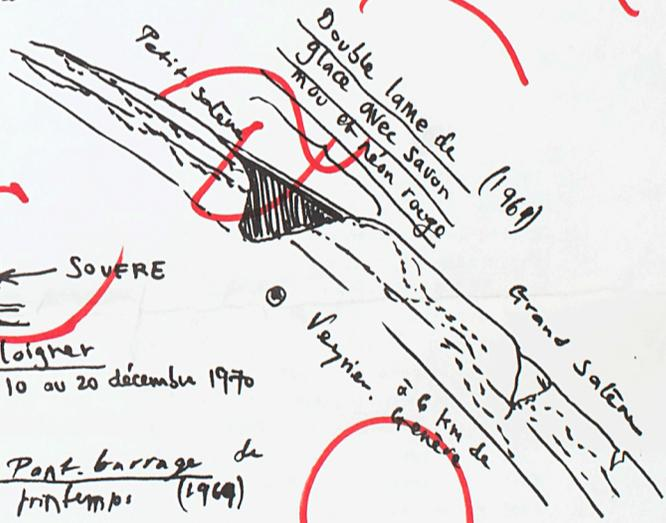 Petit Salève
Double lame de
glace avec savon
mou et néon rouge
(1969)
SOUERE
loigner
10 au 20 décembre 1970
Veyrier.
à 6 km de
Genève
Grand Salève
Pont-barrage de
printemps (1969)